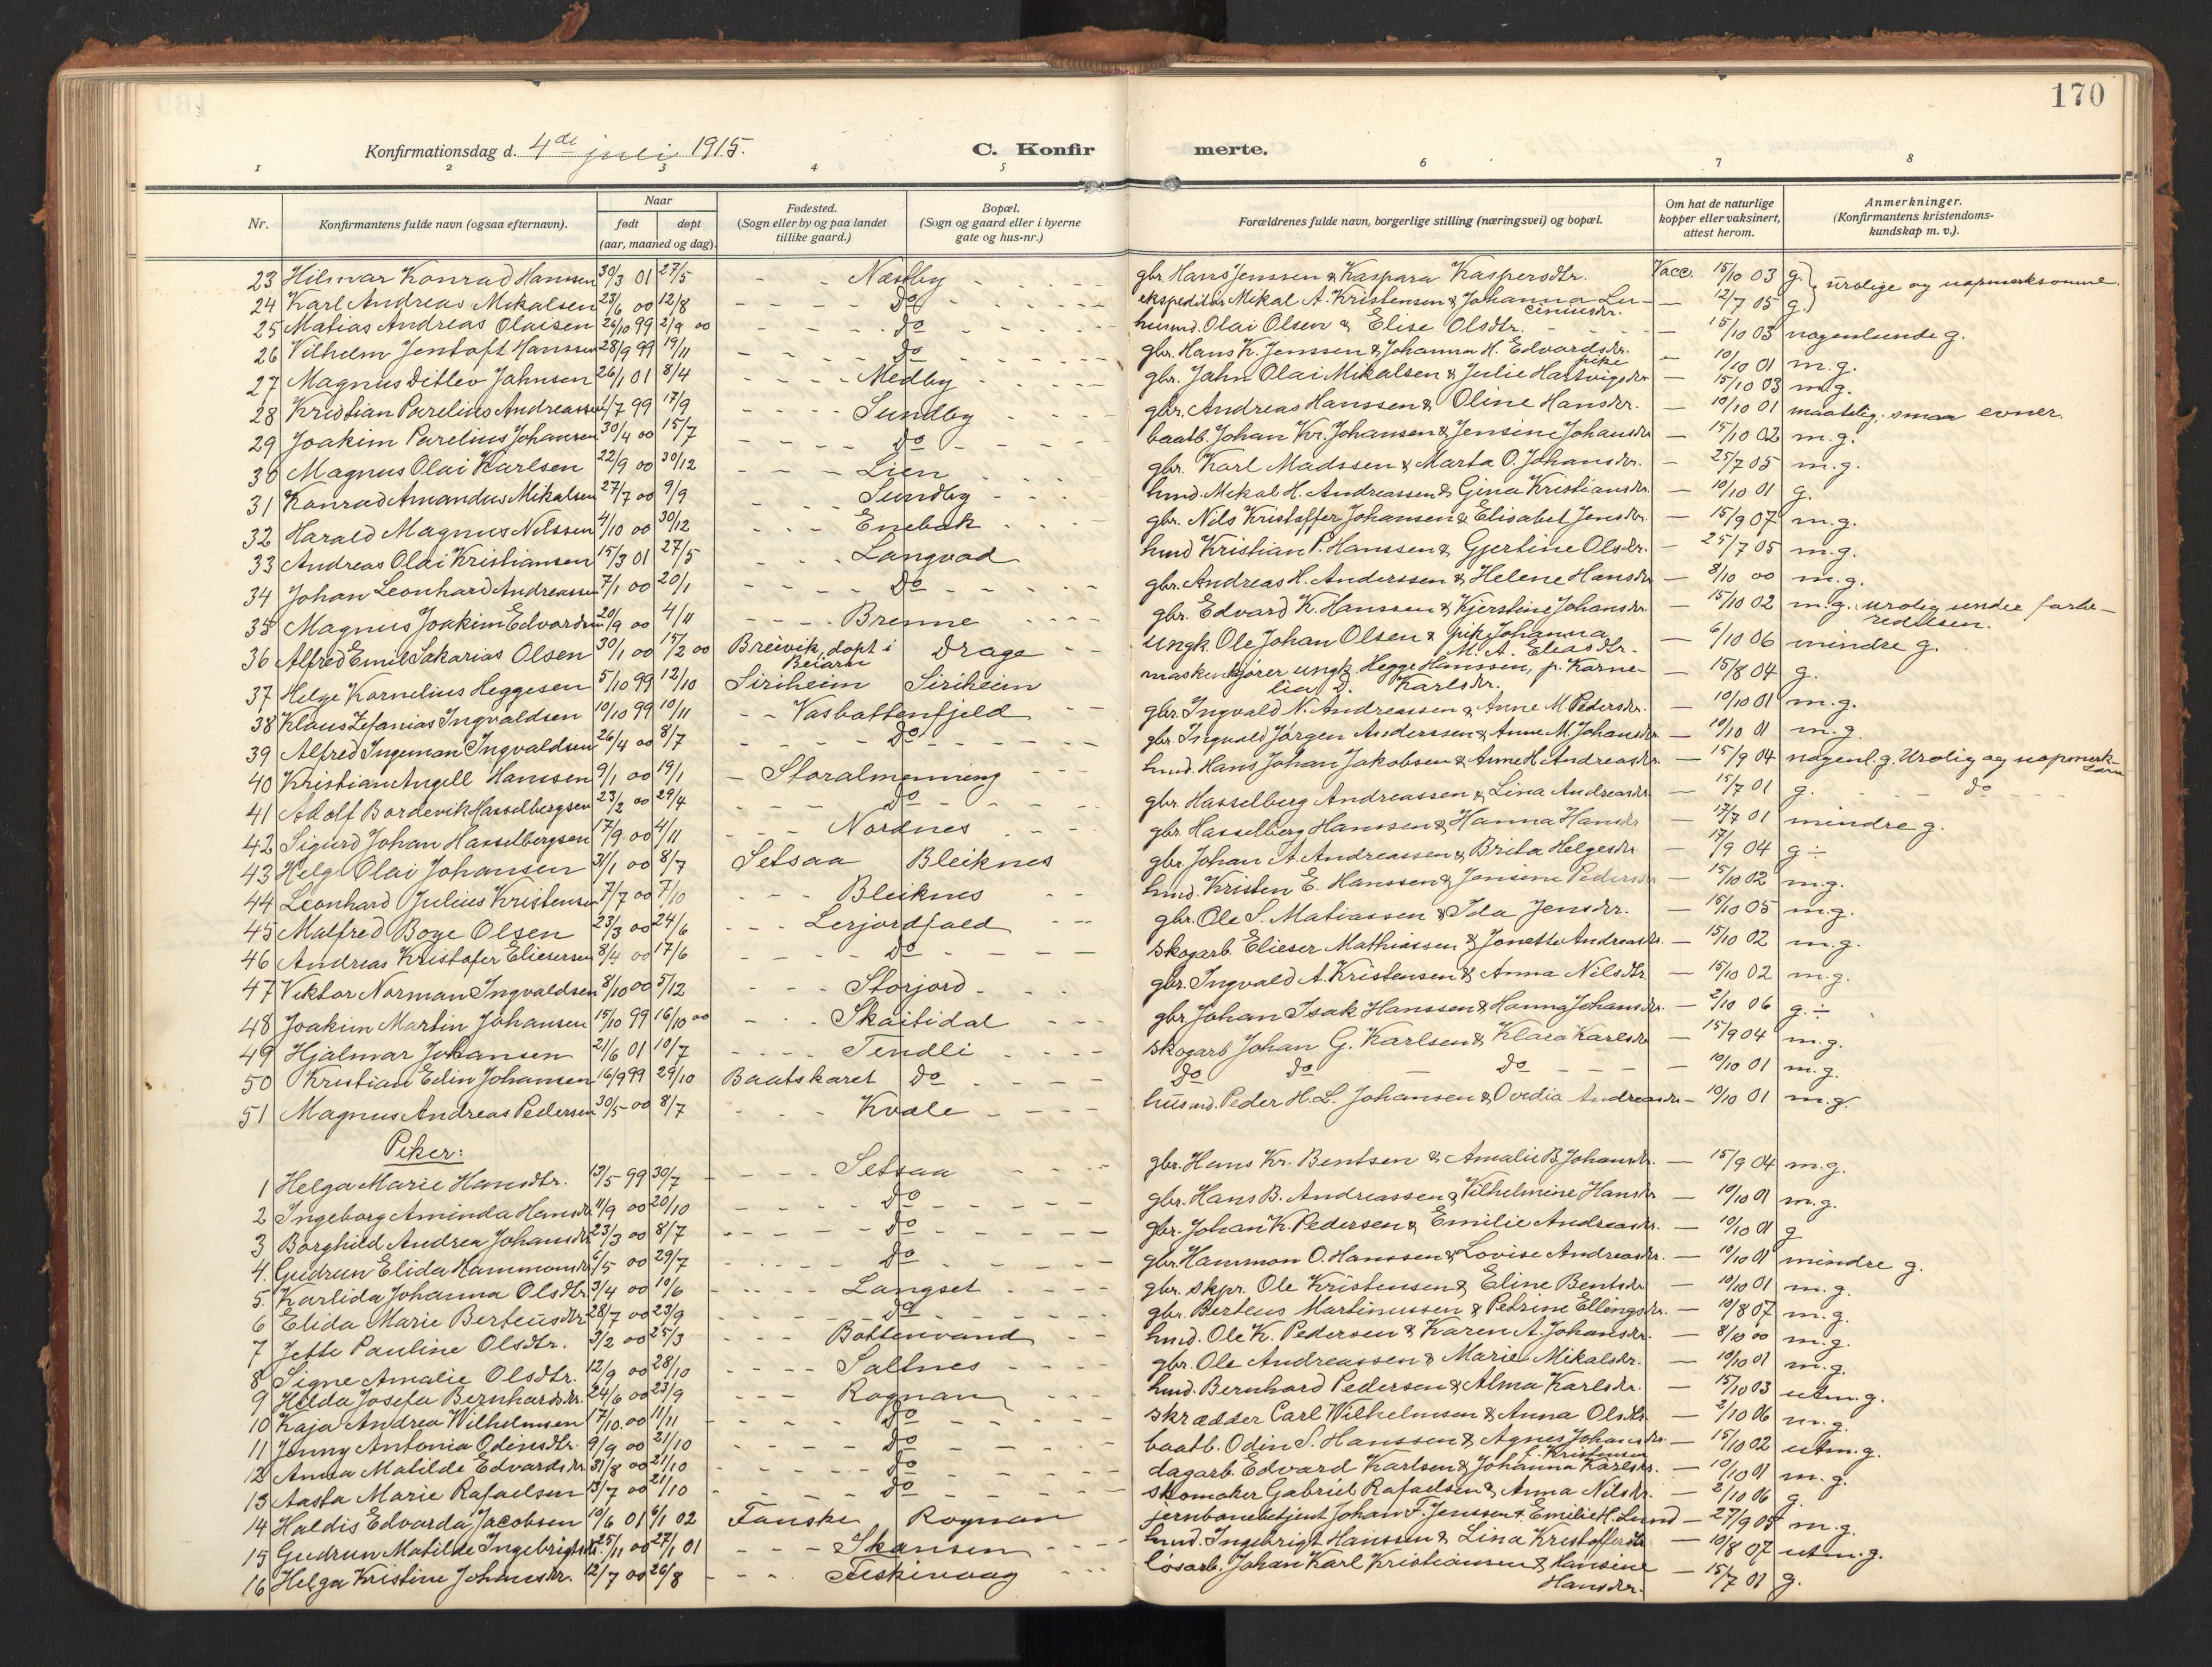 170
Konfirmationsdag d. 4de juli 1915.
C. Konfirmerte.
1 2 3 4 5 6 7 8
Nr. | Konfirmantens fulde navn (ogsaa efternavn). | Naar født døpt (aar, maaned og dag). | Fødested. (Sogn eller by og paa landet tillike gaard.) | Bopæl. (Sogn og gaard eller i byerne gate og hus-nr.) | Forældrenes fulde navn, borgerlige stilling (næringsvei) og bopæl. | Om hat de naturlige kopper eller vaksinert, attest herom. | Anmerkninger. (Konfirmantens kristendoms-kundskap m. v.).
23 Hilmar Konrad Hanssen 30/3 01 27/5 - - Næstby - - gbr. Hans Jenssen & Kaspara Kaspersdtr. Vacc. 15/10 03 g. } urolige og uopmerksomme.
24 Karl Andreas Mikalsen 23/6 00 12/8 - - do - - ekspeditør Mikal A. Kristensen & Johanna Luciusdr. — 12/7 05 g. }
25 Matias Andreas Olaisen 26/10 99 2/9 00 - - do - - husmd. Olai Olsen & Elise Olsdtr. - 15/10 03 nogenlunde g.
26 Vilhelm Jentoft Hanssen 28/9 99 19/11 - - do - - gbr. Hans K. Jenssen & Johanna H. Edvardsdr. — 10/10 01 m.g.
27 Magnus Ditlev Jahnsen 26/1 01 8/4 - - Medby - - gbr. Jahn Olai Mikalsen & pike Julie Hartvigsdr. — 15/10 03 m.g.
28 Kristian Parelius Andreassen 1/7 99 17/9 - - Sundby - - gbr. Andreas Hanssen & Oline Hansdr. — 10/10 01 maatelig. smaa evner.
29 Joakim Parelius Johansen 30/4 00 15/7 - - do - - baatb. Johan Kr. Johansen & Jensine Johansdr — 15/10 02 m.g.
30 Magnus Olai Karlsen 22/9 00 30/12 - - Lien - - gbr. Karl Madssen & Marta O. Johansdr. — 25/7 05 m.g.
31 Konrad Amandus Mikalsen 27/7 00 9/9 - - Sundby - - husd. Mikal H. Andreassen & Gina Kristiansdr. — 10/10 01 g.
32 Harald Magnus Nilssen 4/10 00 30/12 - - Enebak - - gbr. Nils Kristoffer Johansen & Elisabet Jensdr. — 15/9 07 m.g.
33 Andreas Olai Kristiansen 15/3 01 27/5 - - Langvad husd Kristian P. Hanssen & Gjertine Olsdr. — 25/7 05 m.g.
34 Johan Leonhard Andreassen 7/1 00 20/1 - - do - - gbr. Andreas H. Anderssen & Helene Hansdr — 8/10 00 m.g.
35 Magnus Joakim Edvardsen 20/9 00 4/11 - - Brenne - - gbr. Edvard K. Hanssen & Kjerstine Johansdr. — 15/10 02 m.g. urolig under forberedelsen.
36 Alfred Emil Sakarias Olsen 30/1 00 15/2 00 Breivik, døpt i Beiarn Drage - - Ungk. Ole Johan Olsen & pike Johanna M. A. Eliasdtr. — 6/10 06 mindre g.
37 Helge Kornelius Heggesen 5/10 99 12/10 Siriheim Siriheim maskinkjører ungk. Hegge Hanssen, p. Kornelia D. Karlsdr. — 15/8 04 g.
38 Klaus Zefanias Ingvaldsen 10/10 99 10/11 - - Vasbottenfjeld - - gbr. Ingvald N. Andreassen & Anne M. Pedersdr. — 10/10 01 m.g.
39 Alfred Ingeman Ingvaldsen 26/4 00 8/7 - - do - - gbr. Ingvald Jørgen Anderssen & Anne M. Johansdr — 10/10 01 m.g.
40 Kristian Angell Hanssen 9/1 00 19/1 - Storalmenning - - husd. Hans Johan Jakobsen & Anne H. Andreasdr. — 15/9 04 nogenl. g. Urolig og uopmerksom
41 Adolf Bordevik Hasselbergsen 23/2 00 29/4 - - do - - gbr. Hasselberg Andreassen & Lina Andreasdr. — 15/7 01 g. - do -
42 Sigurd Johan Hasselbergsen 17/9 00 4/11 - - Nordnes - - gbr. Hasselberg Hanssen & Hanna Hansdr — 17/7 01 mindre g.
43 Helge Olai Johansen 31/1 00 8/7 Setsaa Bleiknes gbr. Johan A. Andreassen & Brita Helgesdr. — 17/9 04 g ÷
44 Leonhard Julius Kristensen 7/7 00 7/10 - - Bleiknes - - husd. Kristen E. Hanssen & Jensine Pedersdr — 15/10 02 m.g.
45 Malfred Boye Olsen 23/3 00 24/6 - - Lerjordfald - - gbr. Ole S. Matiassen & Ida Jensdr. — 15/10 05 m.g.
46 Andreas Kristofer Eliesersen 8/4 00 17/6 - - do - - skogarb. Elieser Mathiassen & Jonette Andreasdr. — 15/10 02 m.g.
47 Viktor Norman Ingvaldsen 8/10 00 5/12 - - Storjord - - gbr. Ingvald A. Kristensen & Anna Nilsdtr. — 15/10 02 m.g.
48 Joakim Martin Johansen 15/10 99 16/10 00 - - Skaitidal - - gbr Johan Isak Hanssen & Hanna Johansdr. — 2/10 06 g. ÷
49 Hjalmar Johansen 21/6 01 10/7 - - Tendli - - skogarb Johan G. Karlsen & Klara Karlsdr — 15/9 04 m.g.
50 Kristian Edin Johansen 16/9 99 29/10 Baatskaret do - - do do — do - - 10/10 01 m.g.
51 Magnus Andreas Pedersen 30/5 00 8/7 - - Kvæle - - husmd. Peder H. L. Johansen & Ovidia Andreasdr — 10/10 01 m.g.
Piker:
1 Helga Marie Hansdtr. 13/5 99 30/7 - - Setsaa - - gbr. Hans Kr. Bentsen & Amalie B. Johansdr. — 15/9 04 m.g.
2 Ingeborg Aminda Hansdr. 11/9 00 20/10 - - do - - gbr. Hans B. Andreassen & Vilhelmine Hansdr — 10/10 01 m.g.
3 Borghild Andrea Johansdr. 23/3 00 8/7 - - do - - gbr. Johan K. Pedersen & Emilie Andreasdr. — 10/10 01 g
4. Gudrun Elida Hammonsdr. 6/5 00 29/7 - - do - - gbr. Hammon O. Hanssen & Lovise Andreasdr. — 10/10 01 mindre g.
5. Karlida Johanna Olsdtr 3/4 00 10/6 - - Langset - - gbr. skpr. Ole Kristensen & Eline Bentsdr — 10/10 01 m.g.
6 Elida Marie Berteusdr 28/7 00 23/9 - - do - - gbr. Berteus Martinussen & Petrine Ellingsdr. — 10/8 07 m.g.
7 Jette Pauline Olsdtr. 3/2 00 25/3 - - Bottenvand - - husd. Ole K. Pedersen & Karen A. Johansdr. — 8/10 00 m.g.
8 Signe Amalie Olsdtr. 12/9 00 28/10 - - Saltnes - - gbr. Ole Andreassen & Marie Mikalsdr. — 10/10 01 m.g.
9 Hilda Josefa Bernhardsdr. 24/6 00 23/9 - - Rognan - - husd. Bernhard Pedersen & Alma Karlsdr. — 15/10 03 utm.g.
10 Kaja Andrea Wilhelmsen 17/10 00 11/11 - - do - - skrædder Carl Wilhelmsen & Anna Olsdtr — 2/10 06 m.g.
11 Jenny Antonia Odinsdtr. 9/9 00 21/10 - - do - - baatb. Odin S. Hanssen & Agnes Johansdr. — 15/10 02 utm.g.
12 Anna Matilde Edvardsdr. 31/8 00 21/10 - - do - - dagarb. Edvard Karlsen & Johanna f. Kristensen Karlsdr. — 10/10 01 m.g.
13 Aasta Marie Rafaelsen 13/7 00 21/10 - - do - - skomaker Gabriel Rafaelsen & Anna Nilsdr. — 2/10 06 g.
14 Haldis Edvarda Jacobsen 10/6 01 6/1 02 Fauske Rognan jernbanebetjent Johan F. Jenssen & Emilie H. Lund — 27/9 05 m.g.
15 Gudrun Matilde Ingebrigtsdr. 25/11 00 27/1 01 - - Skansen - - husd. Ingebrigt Hanssen & Lina Kristoffersdr — 10/8 07 utm.g.
16 Helga Kristine Johansdr. 12/7 00 26/8 - - Fiskivaag - - løsarb. Johan Karl Kristiansen & Hansine Hansdr. — 15/7 01 g.